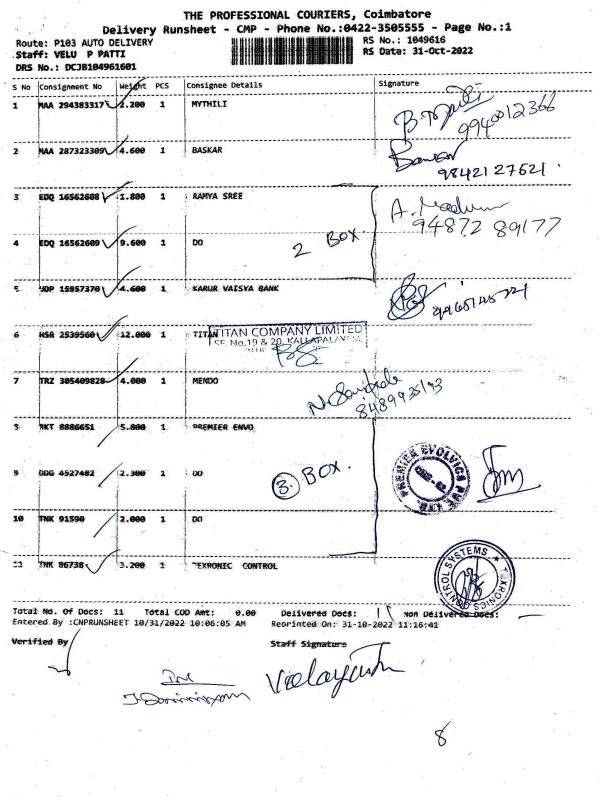 THE PROFESSIONAL COURIERS, Coimbatore
Delivery Runsheet - CMP - Phone No.:0422-3505555 - Page No.:1
Route: P103 AUTO DELIVERY
RS No.: 1049616
Staff: VELU P PATTI
RS Date: 31-Oct-2022
DRS No.: DCJB104961601
S No Consignment No Weight PCS Consignee Details Signature
1 MAA 294383317 2.200 1 MYTHILI
9940012366
2 MAA 287323309 4.600 1 BASKAR
9842127621
3 EDQ 16562608 1.800 1 RAMYA SREE
94872 89177
4 EDQ 16562609 9.600 1 DO 2 BOX.
5 UDP 15957370 4.600 1 KARUR VAISYA BANK
6 HSR 2539560 12.000 1 TITAN
TITAN COMPANY LIMITED
SF. No.19 & 20, KALLAPALAYAM,
7 TRZ 305409828 4.000 1 MENDO
8489935193
8 RKT 8886651 5.800 1 PREMIER ENVO
PREMIER EVOLVICS PVT LTD.
9 DDG 4527482 2.300 1 DO 3. BOX.
10 TNK 91590 2.000 1 DO
11 TNK 86738 3.200 1 TEXRONIC CONTROL
TEXRONICS CONTROL SYSTEMS
Total No. Of Docs: 11 Total COD Amt: 0.00 Delivered Docs: 11 Non Delivered Docs: -
Entered By :CNPRUNSHEET 10/31/2022 10:06:05 AM Reprinted On: 31-10-2022 11:16:41
Verified By Staff Signature
8